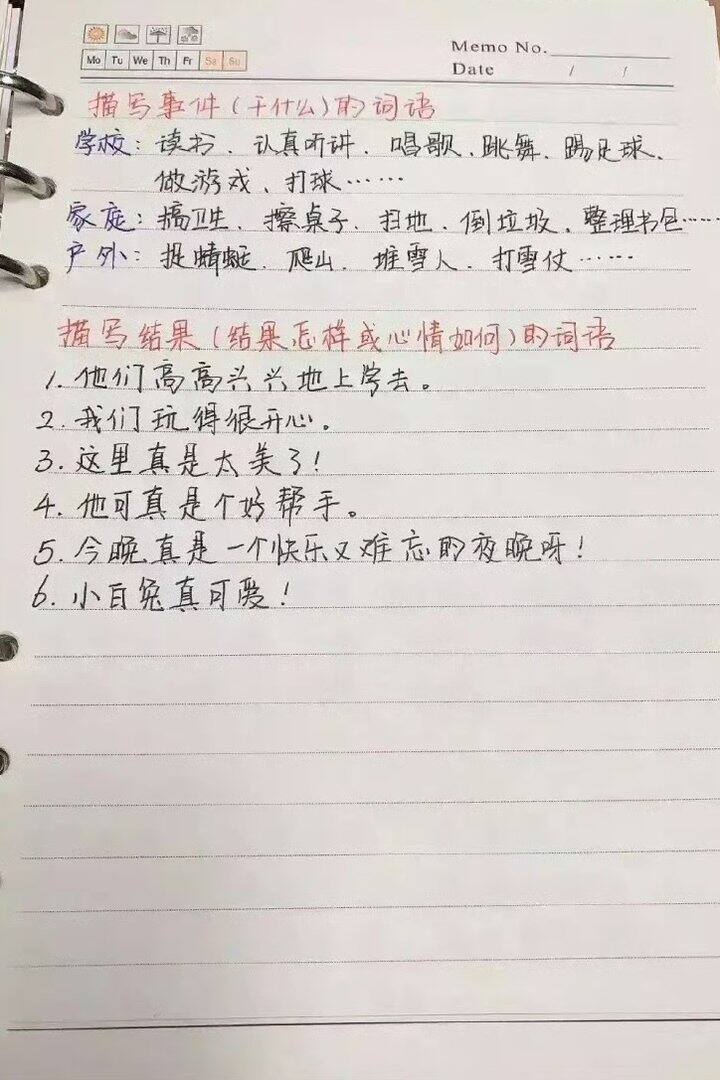 Mo Tu We Th Fr Sa Su
Memo No.
Date / /
描写事件(干什么)的词语
学校:读书、认真听讲、唱歌、跳舞、踢足球、
做游戏、打球……
家庭:搞卫生、擦桌子、扫地、倒垃圾、整理书包……
户外:捉蜻蜓、爬山、堆雪人、打雪仗……
描写结果(结果怎样或心情如何)的词语
1.他们高高兴兴地上学去。
2.我们玩得很开心。
3.这里真是太美了!
4.他可真是个好帮手。
5.今晚真是一个快乐又难忘的夜晚呀!
6.小白兔真可爱!